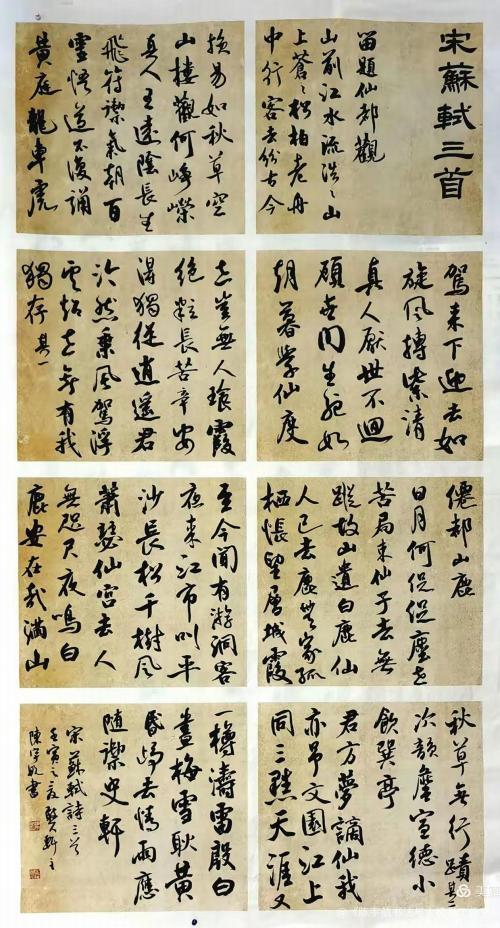 宋蘇軾三首
留題仙都觀
山前江水流浩〻山
上蒼〻松柏老舟
中行客去紛古今
換易如秋草空
山樓觀何崢嶸
真人王遠陰長生
飛符禦氣朝百
靈悟道不復誦
黃庭龍車虎
駕來下迎去如
旋風摶紫清
真人厭世不迴
顧世間生死如
朝暮學仙度
世豈無人飡霞
絕粒長苦辛安
得獨從逍遙君
泠然乘風駕浮
雲超世無有我
獨存 其一
僊都山鹿
日月何促促塵世
苦局束仙子去無
蹤故山遺白鹿仙
人已去鹿無家孤
棲悵望層城霞
至今聞有游洞客
夜來江市叫平
沙長松千樹風
蕭瑟仙宮去人
無咫尺夜鳴白
鹿安在哉滿山
秋草無行蹟 其二
次韻宣德小
飲巽亭
君方夢謫仙我
亦吊文園江上
同三黜天涯又
一樽濤雷殷白
晝梅雪耿黃
昏歸去情雨應
隨禦史軒
宋蘇軾詩三首
壬寅之夏軒主
陳書